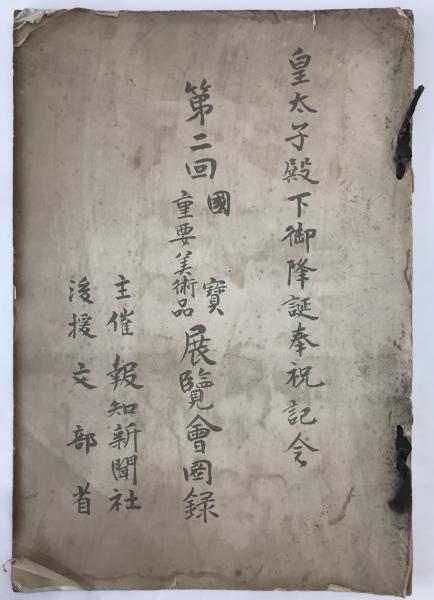 皇太子殿下御降誕奉祝記念
第二回國寶重要美術品展覽會圖録
主催報知新聞社
後援文部省